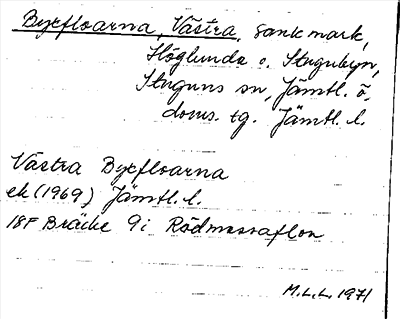 Byxfloarna, Västra, sank mark,
Höglunda o. Stugubyn,
Stuguns sn, Jämtl. ö.
doms. tg. Jämtl. l.
Västra Byxfloarna
ek (1969) Jämtl. l.
18F Bräcke 9i Rödmossaflon
M.L.L. 1971